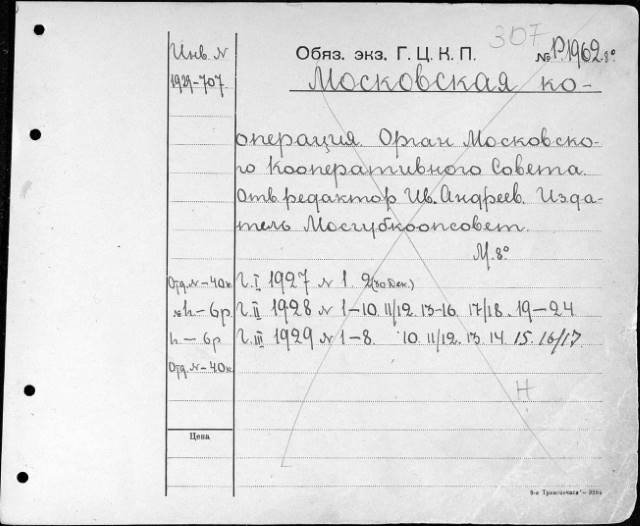 307
Инв. N
1929-707.
Обяз. экз. Г. Ц. К. П.
№ Р.1962.8°
Московская ко-
операция. Орган Московско-
го Кооперативного Совета.
Отв. редактор Ив. Андреев. Изда-
тель Мосгубкоопсовет.
М. 8°
Отд. N - 40к.
Г. I 1927 N 1. 2 (30 Дек.)
h - 6р
Г. II 1928 N 1-10. 11/12. 13-16. 17/18. 19-24
h - 6р
Г. III 1929 N 1-8. 10. 11/12. 13. 14. 15. 16/17
Отд. N - 40к.
Н
Цена